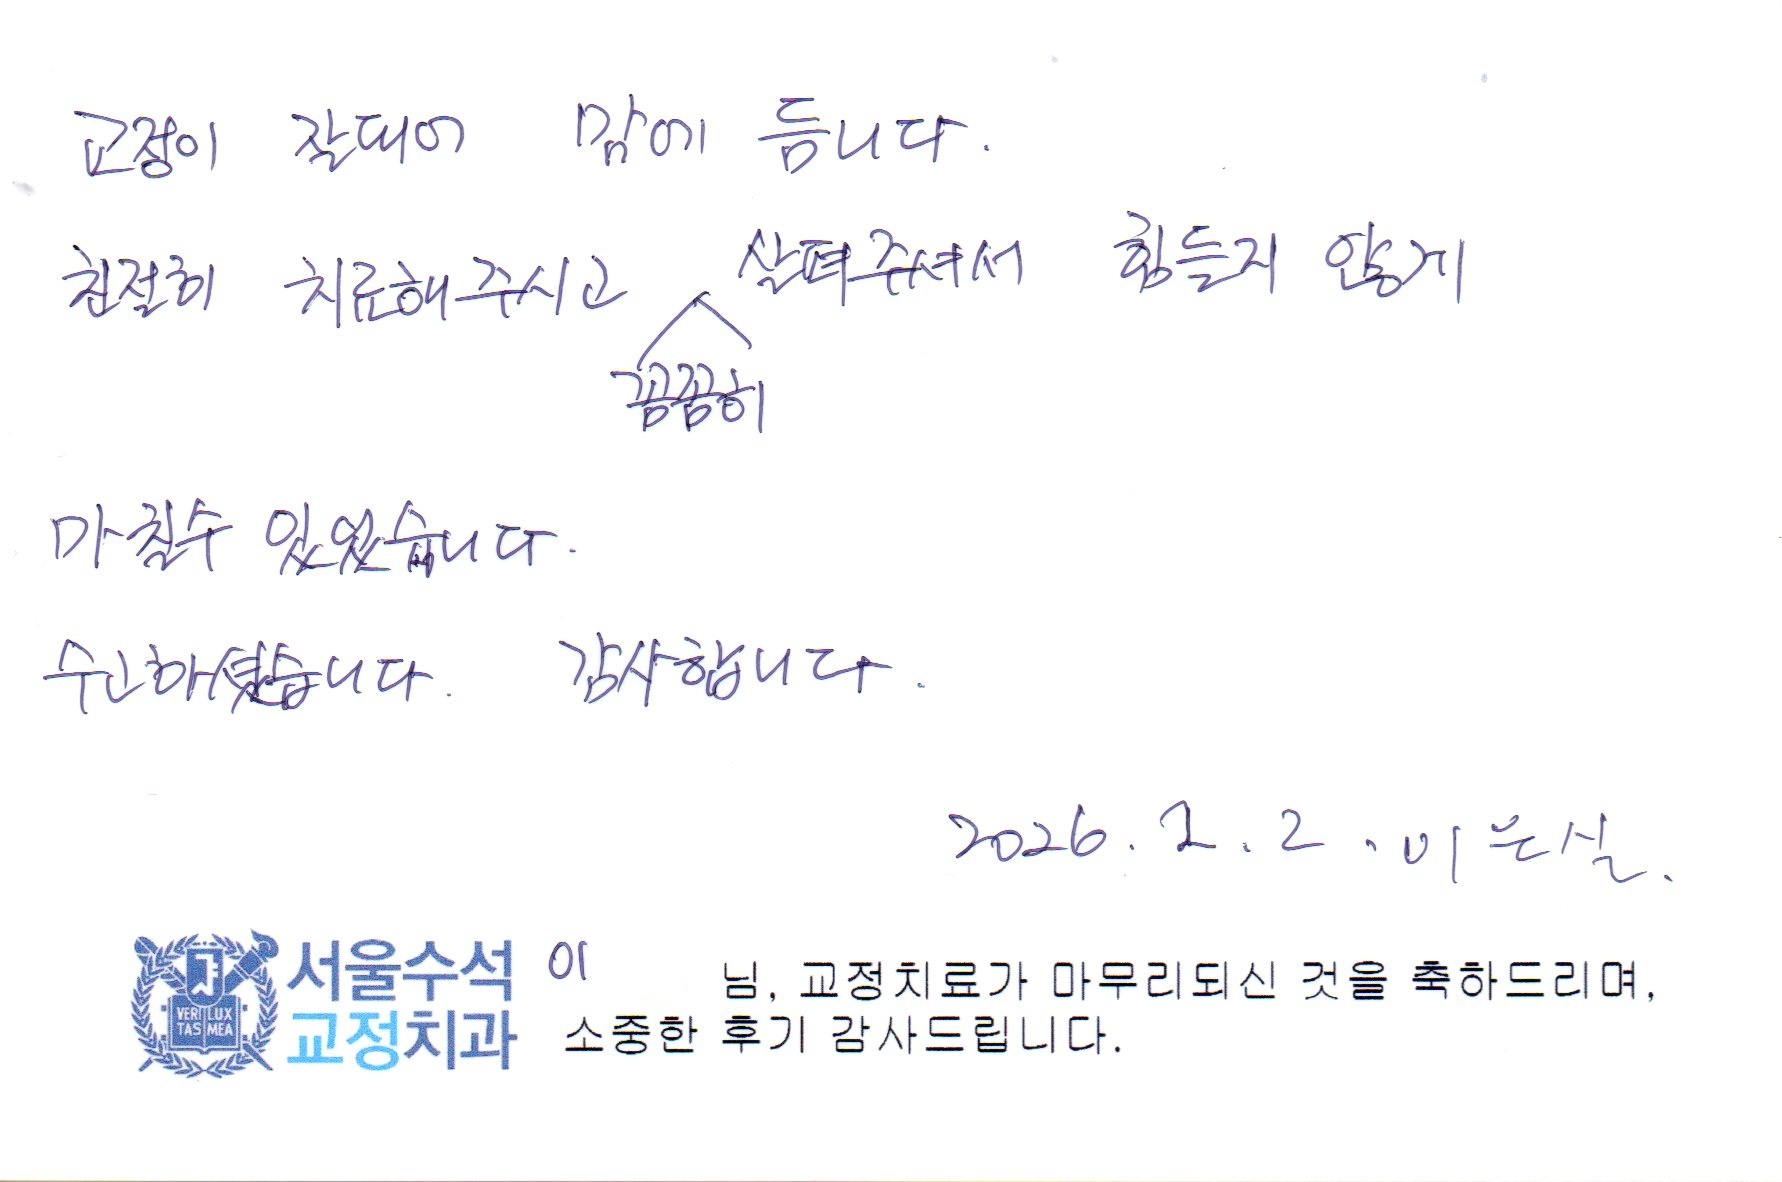 교정이 잘되어 맘에 듬니다.
친절히 치료해주시고 살펴주셔서 힘들지 않게
꼼꼼히
마칠수 있었습니다.
수고하셨습니다. 감사합니다.
2026. 2. 2. 이은실.
서울수석
교정치과
VERI LUX
TAS MEA
이 님, 교정치료가 마무리되신 것을 축하드리며,
소중한 후기 감사드립니다.